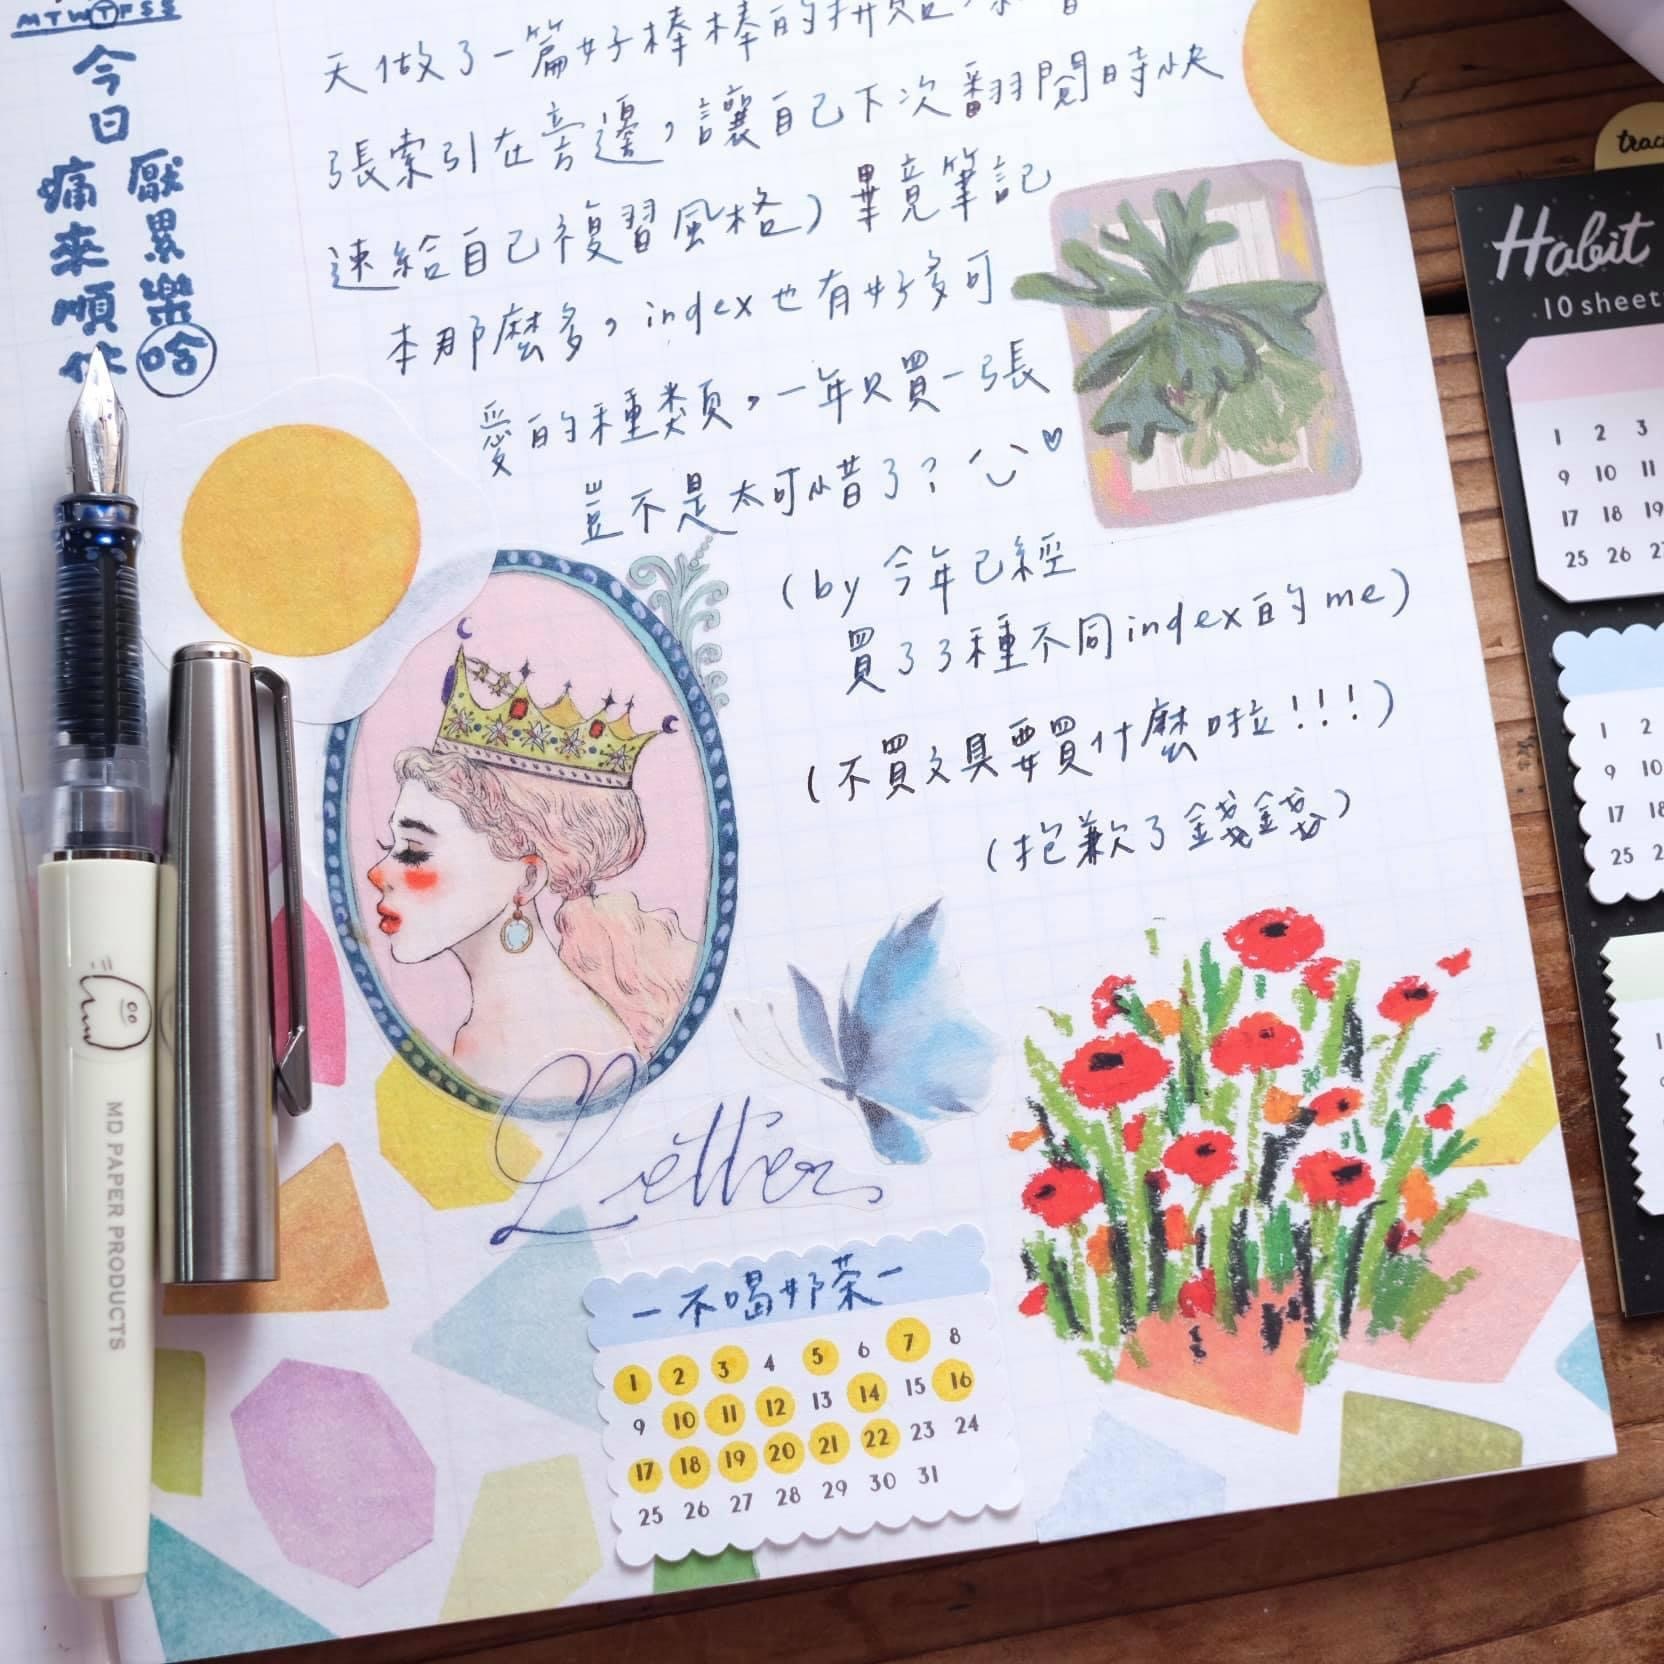 MTWTFSS
今日
厭累樂哈
痛來順
天做了一篇好棒棒的拼貼,
張索引在旁邊,讓自己下次翻閱時快
速給自己複習風格)畢竟筆記
本那麼多,index也有好多可
愛的種類,一年只買一張
豈不是太可惜了?
(by 今年已經
買了3種不同index的me)
(不買文具要買什麼啦!!!)
(抱歉了錢錢)
Letter
MD PAPER PRODUCTS
-不喝奶茶-
1 2 3 4 5 6 7 8
9 10 11 12 13 14 15 16
17 18 19 20 21 22 23 24
25 26 27 28 29 30 31
Habit
10 sheets
1 2 3
9 10 11
17 18 19
25 26
1 2
9 10
17 18
25